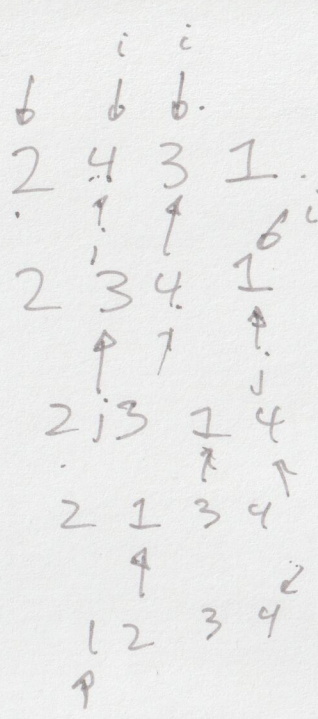 i i
2 4 3 1
i
2 3 4 1
j
2 j 3 1 4
2 1 3 4
1 2 3 4